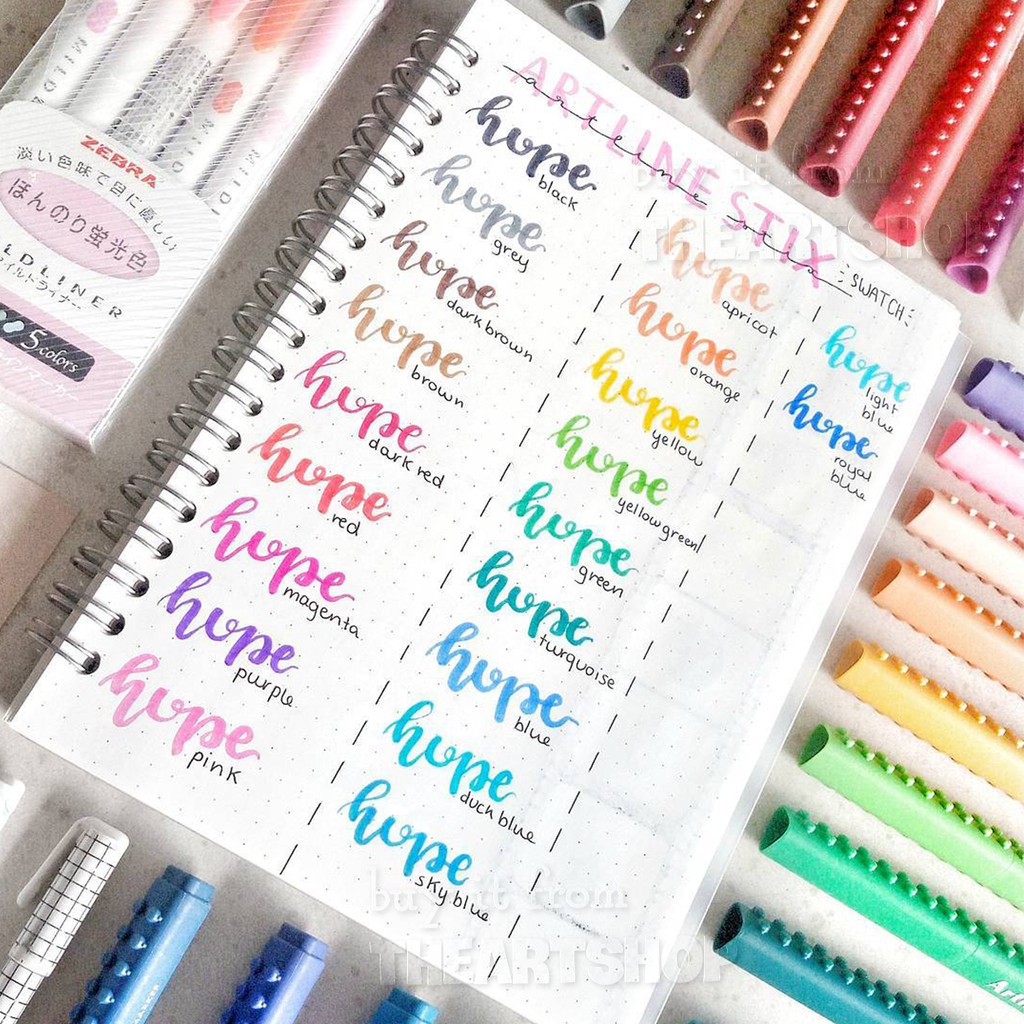 ZEBRA
淡い色味で目に優しい
ほんのり蛍光色
LDLINER
イルドライナー
5 colors
ARTLINE STIX
arteline stix
SWATCH
hope
black
hope
grey
hope
dark brown
hope
brown
hope
dark red
hope
red
hope
magenta
hope
purple
hope
pink
hope
apricot
hope
orange
hope
yellow
hope
yellow green
hope
green
hope
turquoise
hope
blue
hope
duck blue
hope
sky blue
hope
light
blue
hope
royal
blue
buy it from
THEARTSHOP
buy it from
THEARTSHOP